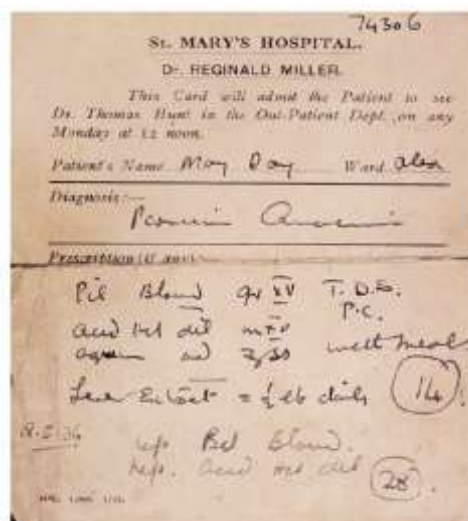 74306
ST. MARY'S HOSPITAL.
Dr. REGINALD MILLER.
This Card will admit the Patient to see
Dr. Thomas Hunt in the Out-Patient Dept., on any
Monday at 12 noon.
Patient's Name May Day Ward Alex
Diagnosis:—
Pernicious Anaemia
Prescription (if any)
Pil Blaud gr XV T.D.S.
P.C.
acid Hcl dil m XV
aquam ad ℥ss with meals
Liver Extract = ½ lb daily 14
8-5-36
rep. Pil Blaud.
Rep. acid Hcl dil 28